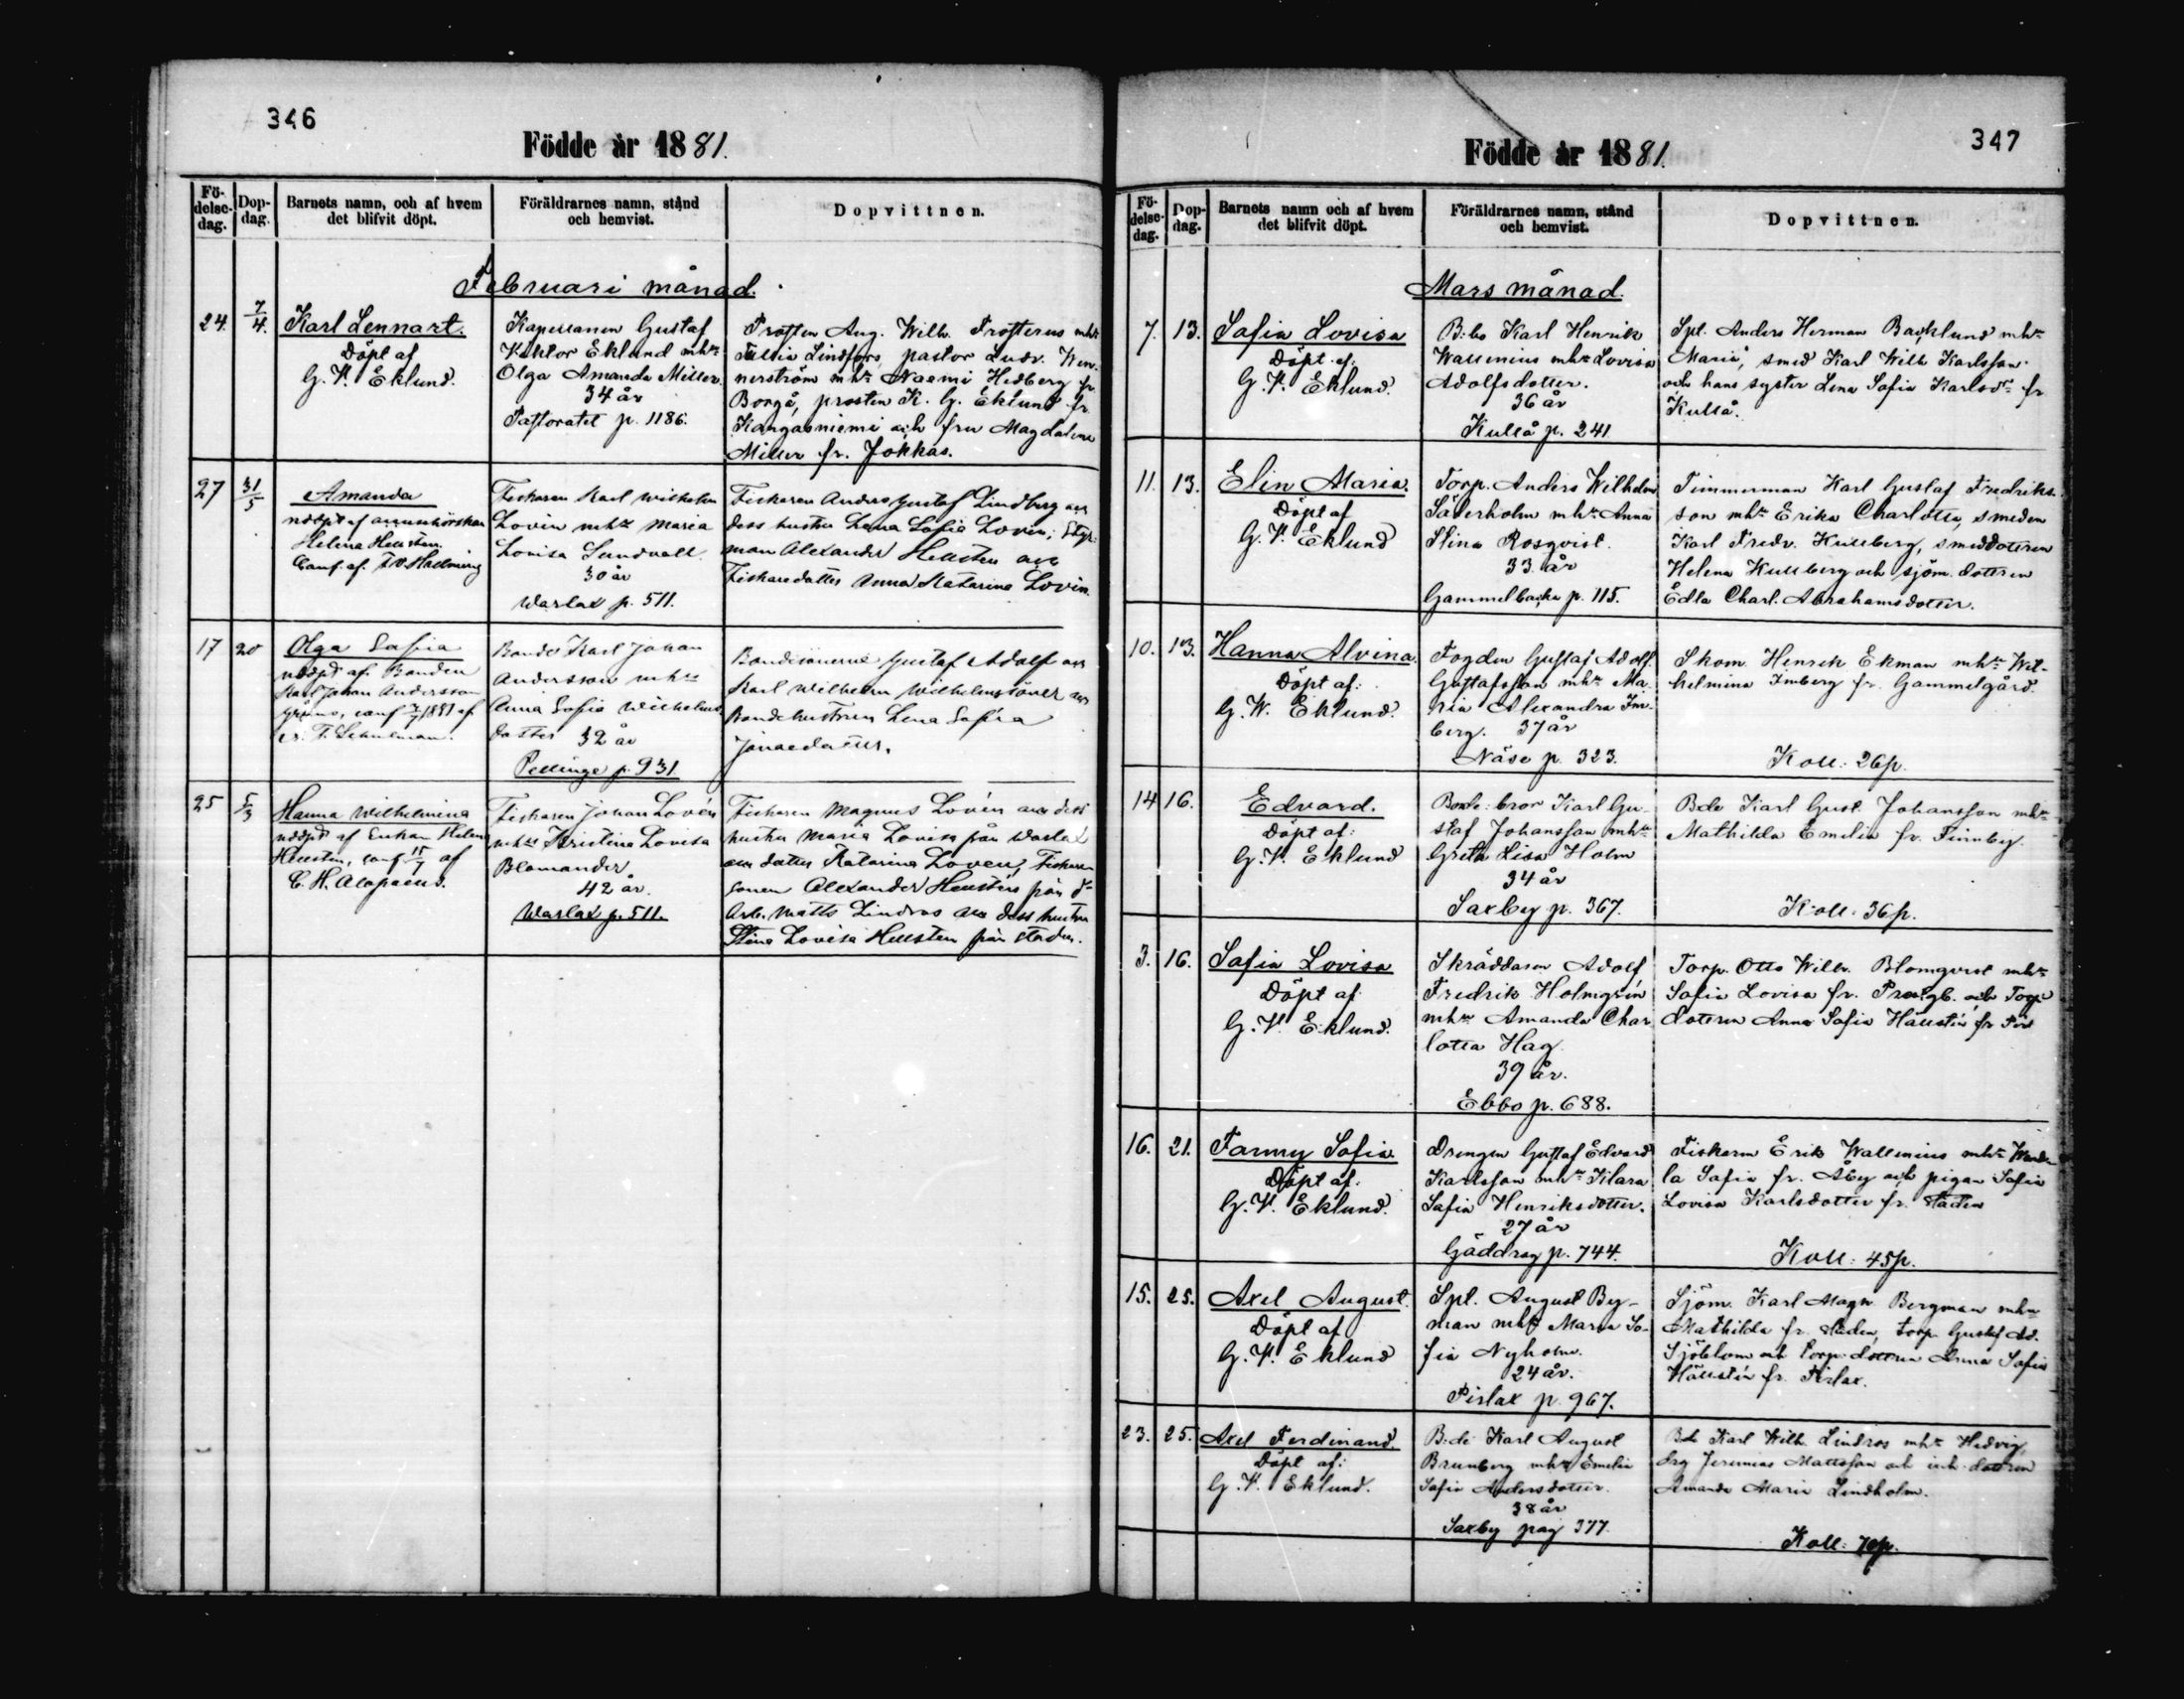 346
Födde år 1881.
Fö-
delse-
dag.
Dop-
dag.
Barnets namn, och af hvem
det blifvit döpt.
Föräldrarnes namn, stånd
och hemvist.
Dopvittnen.
Februari månad.
24. 7/4. Karl Lennart.
Döpt af
G. V. Eklund.
Kapellanen Gustaf
Viktor Eklund mhu
Olga Amanda Miller.
34 år
Pastoratet p. 1186.
Prosten Aug. Wilh. Frosterus mhu
Lindfors, pastor Ludv. Wen-
nerström mhu Naemi Hedberg fr.
Borgå, prosten K. G. Eklund fr.
Kangasniemi och fru Magdalena
Miller fr. Jokkas.
27 31/5 Amanda
nödpt af
Helena Hellsten.
Conf. af F. W. Hallming
Fiskaren Karl Wilhelm
Lovin mhu Maria
Lovisa Sundvall
30 år
Warlax p. 511.
Fiskaren Anders Gustaf Lindberg och
dess hustru Lena Sofia Lovin,
man Alexander Hellsten och
Fiskaredotter Anna Katarina Lovin.
17 20 Olga Sofia
nödpt af Bonden
Karl Johan Andersson
conf 1881 af
F. Schulman.
Bonde Karl Johan
Andersson mhu
Anna Sofia Wilhelms
dotter 32 år
Pellinge p. 931
Bondesönerne Gustaf Adolf och
Karl Wilhelm Wilhelmssöner och
Bondehustrun Lena Sofia
Jonaedotter.
25 5/3 Hanna Wilhelmina
nödpt af Enkan Helena
Hellsten, conf 15/7 af
C. H. Alopaeus.
Fiskaren Johan Lovén
mhu Kristina Lovisa
Blomander
42 år.
Warlax p. 511.
Fiskaren Magnus Lovén och dess
hustru Maria Lovisa från Warlax
och dotter Katarina Lovén, Fiskare
sonen Alexander Hellstén från do
Arb. Matts Lindros och dess hustru
Stina Lovisa Hellsten från staden.
347
Födde år 1881.
Fö-
delse-
dag.
Dop-
dag.
Barnets namn och af hvem
det blifvit döpt.
Föräldrarnes namn, stånd
och hemvist.
Dopvittnen.
Mars månad.
7. 13. Sofia Lovisa
Döpt af:
G. V. Eklund.
B:bo Karl Henrik
Wallenius mhu Lovisa
Adolfsdotter.
36 år
Kullå p. 241
Spl. Anders Herman Backlund mhu
Maria, smed Karl Wilh Karlsson
och hans syster Lena Sofia Karlsdr fr
Kullå.
11. 13. Elin Maria.
Döpt af
G. V. Eklund
Torp. Anders Wilhelm
Söderholm mhu Anna
Stina Rosqvist.
33 år
Gammelbacka p. 115.
Timmerman Karl Gustaf Fredriks-
son mhu Erika Charlotta, smeden
Karl Fredr. Kullberg, smeddottren
Helena Kullberg och sjöm. dottren
Edla Charl. Abrahamsdotter.
10. 13. Hanna Alvina.
Döpt af:
G. W. Eklund.
Fogden Gustaf Adolf
Gustafsson mhu Ma-
ria Alexandra Im-
berg. 37 år
Näse p. 323.
Skom. Henrik Ekman mhu Wil-
helmina Imberg fr. Gammelgård.
Koll: 26p.
14 16. Edvard.
Döpt af:
G. V. Eklund
Bonde: bror Karl Gu-
staf Johansson mhu
Greta Lisa Holm
34 år
Saxby p. 367.
Bde Karl Gust. Johansson mhu
Mathilda Emelia fr. Finnby.
Koll: 36p.
3. 16. Sofia Lovisa
Döpt af:
G. V. Eklund.
Skräddaren Adolf
Fredrik Holmgrén
mhu Amanda Char
lotta Hag
39 år.
Ebbo p. 688.
Torp. Otto Wilh. Blomqvist mhu
Sofia Lovisa fr. och Torp.
dottren Anna Sofia Hällstén fr
16. 21. Fanny Sofia.
Döpt af:
G. V. Eklund.
Drengen Gustaf Edvard
Karlsson mhu Klara
Sofia Henriksdotter.
27 år
Gäddrag p. 744.
Fiskaren Erik Wallenius mhu Wende
la Sofia fr. Åby och pigan Sofia
Lovisa Karlsdotter fr. staden
Koll: 45p.
15. 25. Axel August.
Döpt af
G. V. Eklund
Spl. August By-
man mhu Maria So-
fia Nyholm.
24 år.
Pirlax p. 967.
Sjöm. Karl Magn. Bergman mhu
Mathilda fr. staden, torp. Gustaf Ad.
Sjöblom och Torp. dottren Anna Sofia
Hällstén fr. Pirlax.
23. 25. Axel Ferdinand.
Döpt af:
G. V. Eklund.
B:de Karl August
Brunberg mhu Emelia
Sofia Andersdotter.
38 år
Saxby pag 377
Bde Karl Wilh. Lindros mhu Hedvig,
drg Jeremias Mattsson och inh. dottren
Amanda Maria Lindholm.
Koll: 70p.